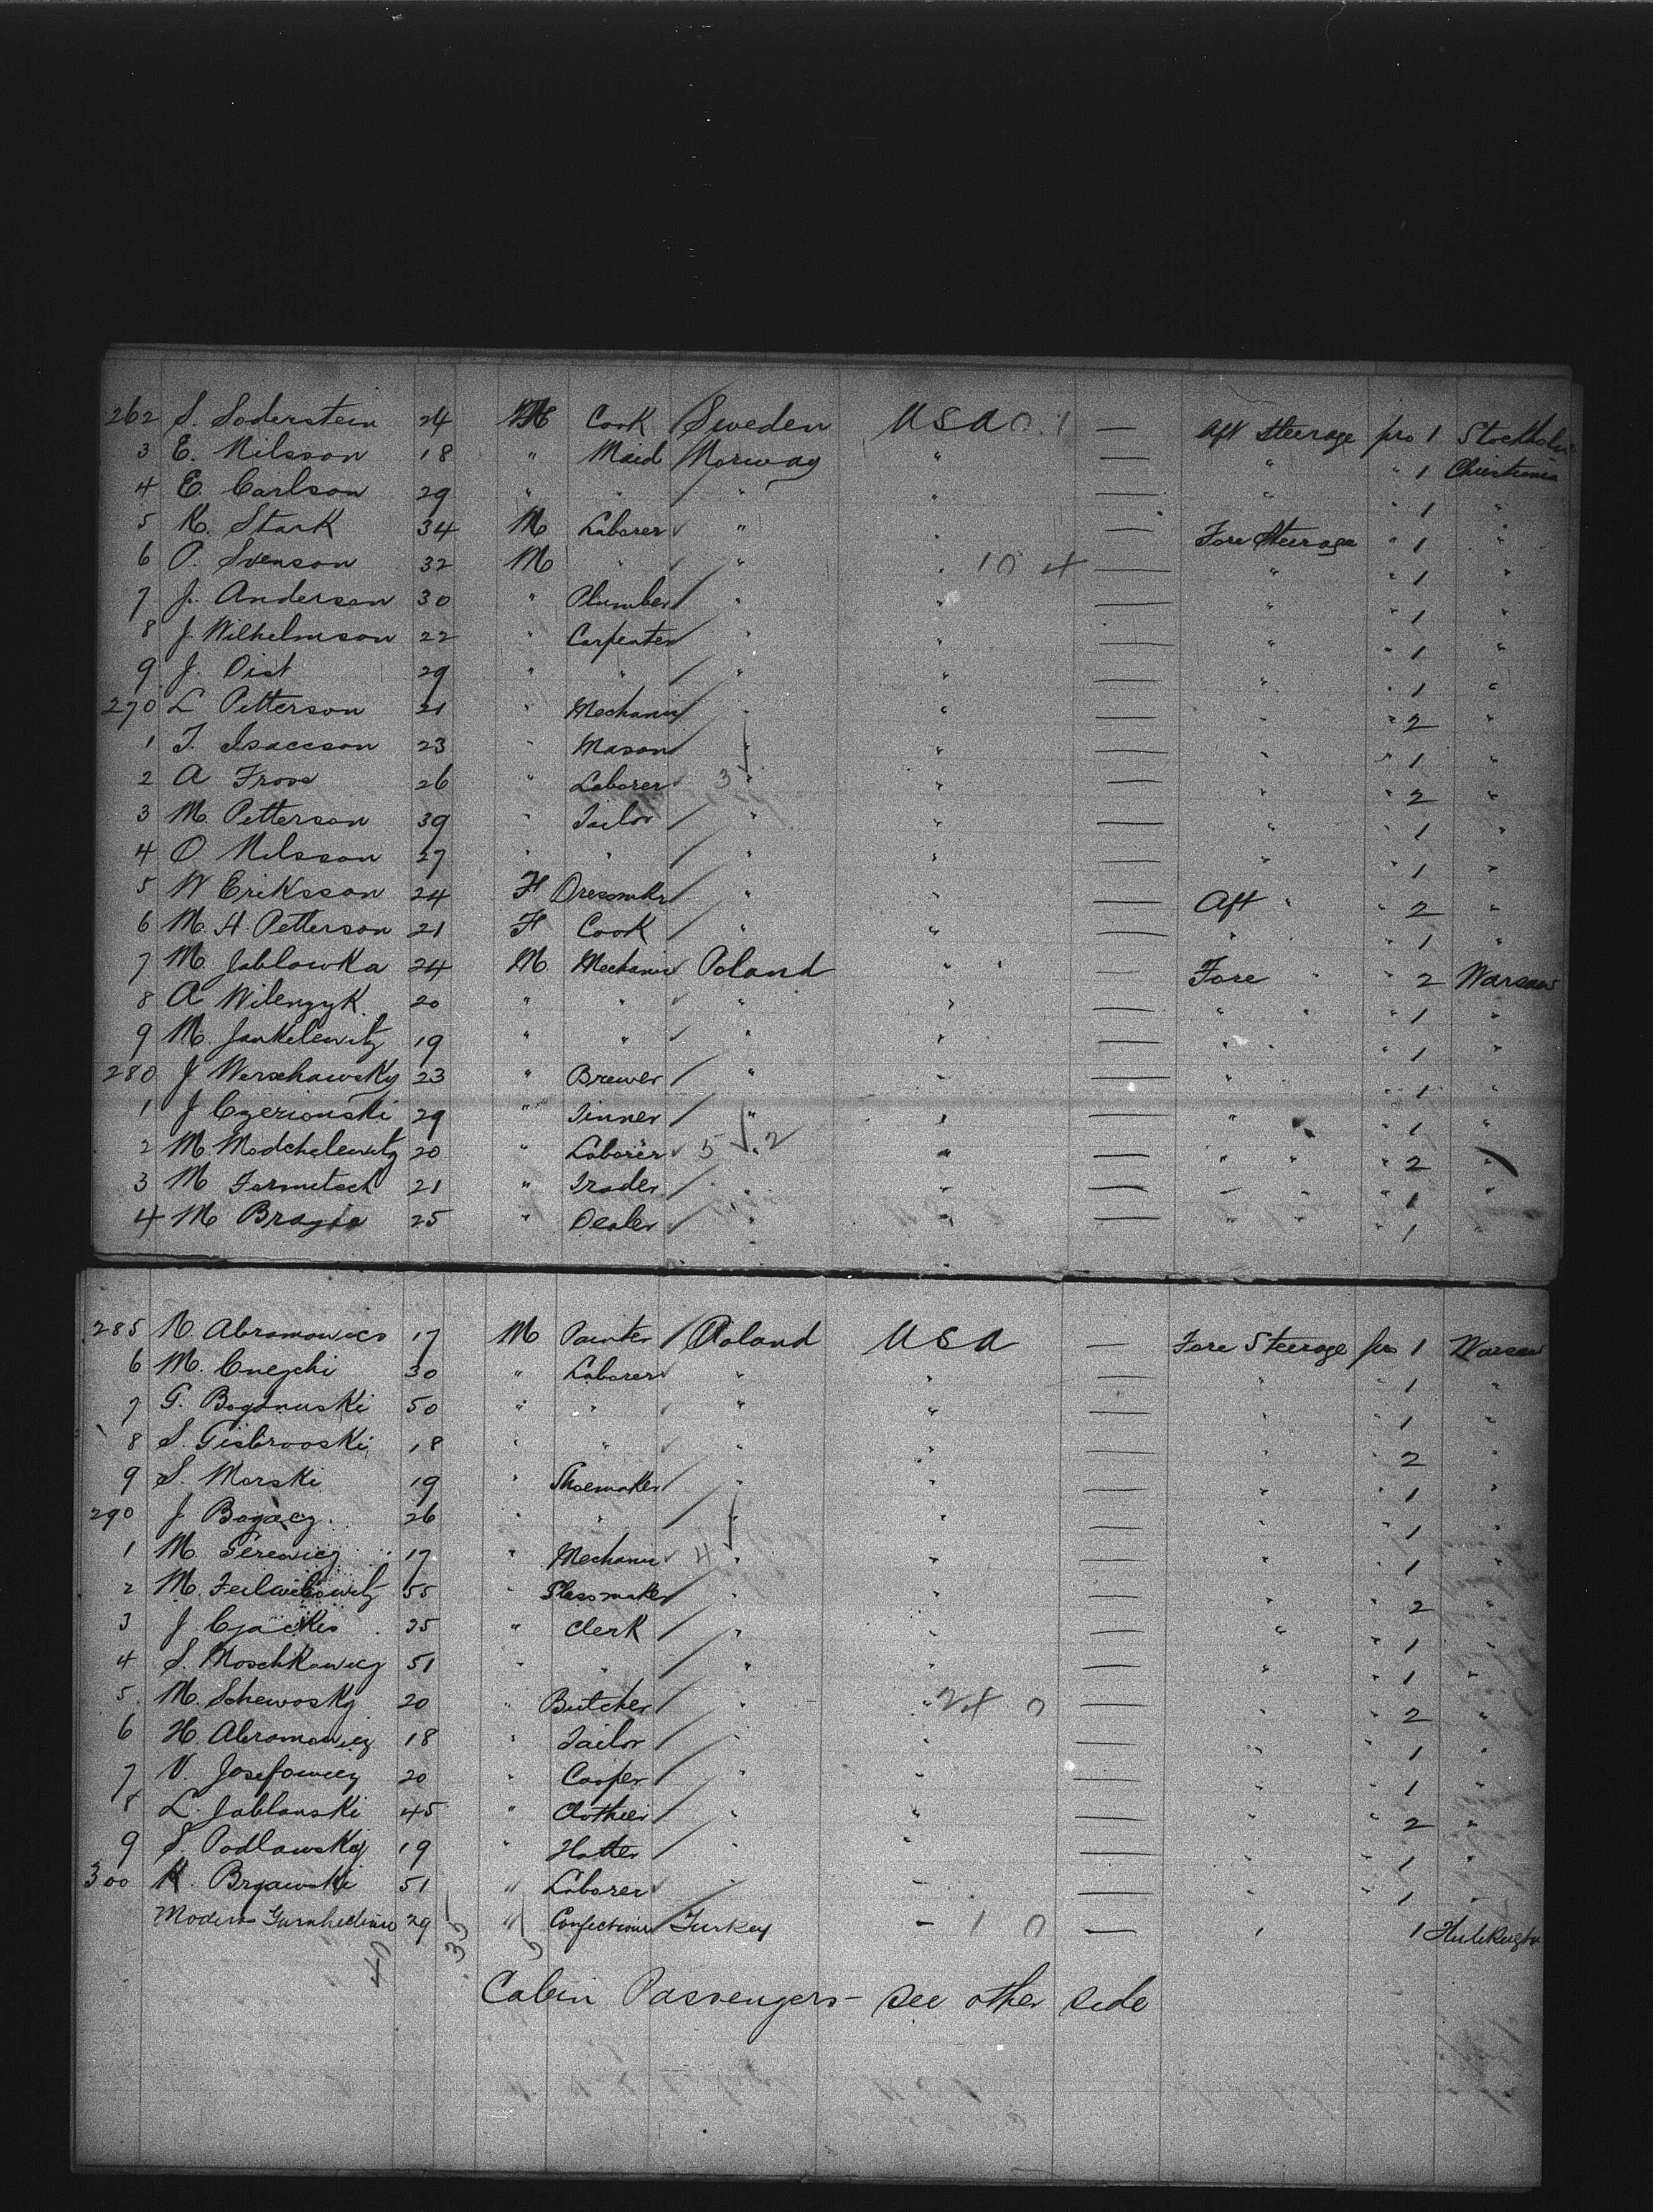 262 S. Soderstein 24 M Cook Sweden USA — Aft Steerage pro 1 Stockholm
3 E. Nilsson 18 " Maid Norway " — " " 1 Christiania
4 E. Carlson 29 " " " " — " " 1 "
5 K. Stark 34 M Laborer " " — Fore Steerage " 1 "
6 O. Svenson 32 M " " " 10 4 — " " 1 "
7 J. Anderson 30 " Plumber " " — " " 1 "
8 J. Wilhelmson 22 " Carpenter " " — " " 1 "
9 J. Oist 29 " " " " — " " 1 "
270 L Petterson 21 " Mechanic " " — " " 2 "
1 T. Isacsson 23 " Mason " " — " " 1 "
2 A 26 " Laborer 3 " " — " " 2 "
3 M. Petterson 39 " Tailor " " — " " 1 "
4 O Nilsson 27 " " " " — " " 1 "
5 W Eriksson 24 F Dressmkr " " — Aft " " 2 "
6 M. H. Petterson 21 F Cook " " — " " " 1 "
7 M. Jablowka 24 M Mechanic Poland " — Fore " " 2 Warsaw
8 A Wilenzyk 20 " " " " — " " " 1 "
9 M. Jankelewitz 19 " " " " — " " " 1 "
280 J Werschawsky 23 " Brewer " " — " " 1 "
1 J Czerionski 29 " Tinner " " — " " 1 "
2 M. Modchelewitz 20 " Laborer 5 " 2 " — " " " 2 "
3 M 21 " Trader " " — " " " 1 "
4 M 25 " Dealer " " — " " " 1 "
285 N. Abramowics 17 M Painter Poland USA — Fore Steerage pro 1 Warsaw
6 M. 30 " Laborer " " — " " 1 "
7 G. Bogdanuski 50 " " " " — " " 1 "
8 S. 18 " " " " — " " 2 "
9 S. Morski 19 " Shoemaker " " — " " 1 "
290 J Bogacz 26 " " " " — " " 1 "
1 M 17 " Mechanic 4 " " — " " 1 "
2 M. 55 " Glassmaker " " — " " 2 "
3 J. 25 " Clerk " " — " " 1 "
4 S. Moschkowicz 51 " " " " — " " 1 "
5. M. Schewosky 20 " Butcher " " 24 0 — " " 2 "
6 H. Abramowicz 18 " Tailor " " — " " 1 "
7 V. Josefowicz 20 " Cooper " " — " " 1 "
8 L. Jablonski 45 " Clothier " " — " " 2 "
9 S. Podlawsky 19 " Hatter " " — " " 1 "
300 K. 51 " Laborer " " — " " 1 "
29 " Confectioner Turkey " 1 0 — " 1
40 35 5
Cabin Passengers — see other side